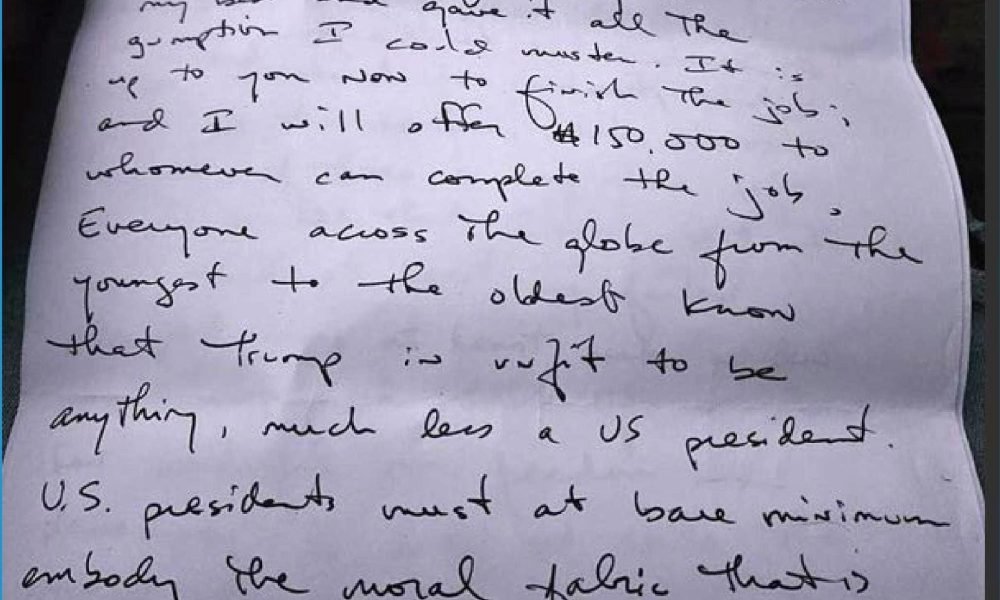 my best and gave it all the
gumption I could muster. It is
up to you now to finish the job;
and I will offer $150,000 to
whomever can complete the job.
Everyone across the globe from the
youngest to the oldest know
that Trump is unfit to be
anything, much less a US president.
U.S. presidents must at bare minimum
embody the moral fabric that is